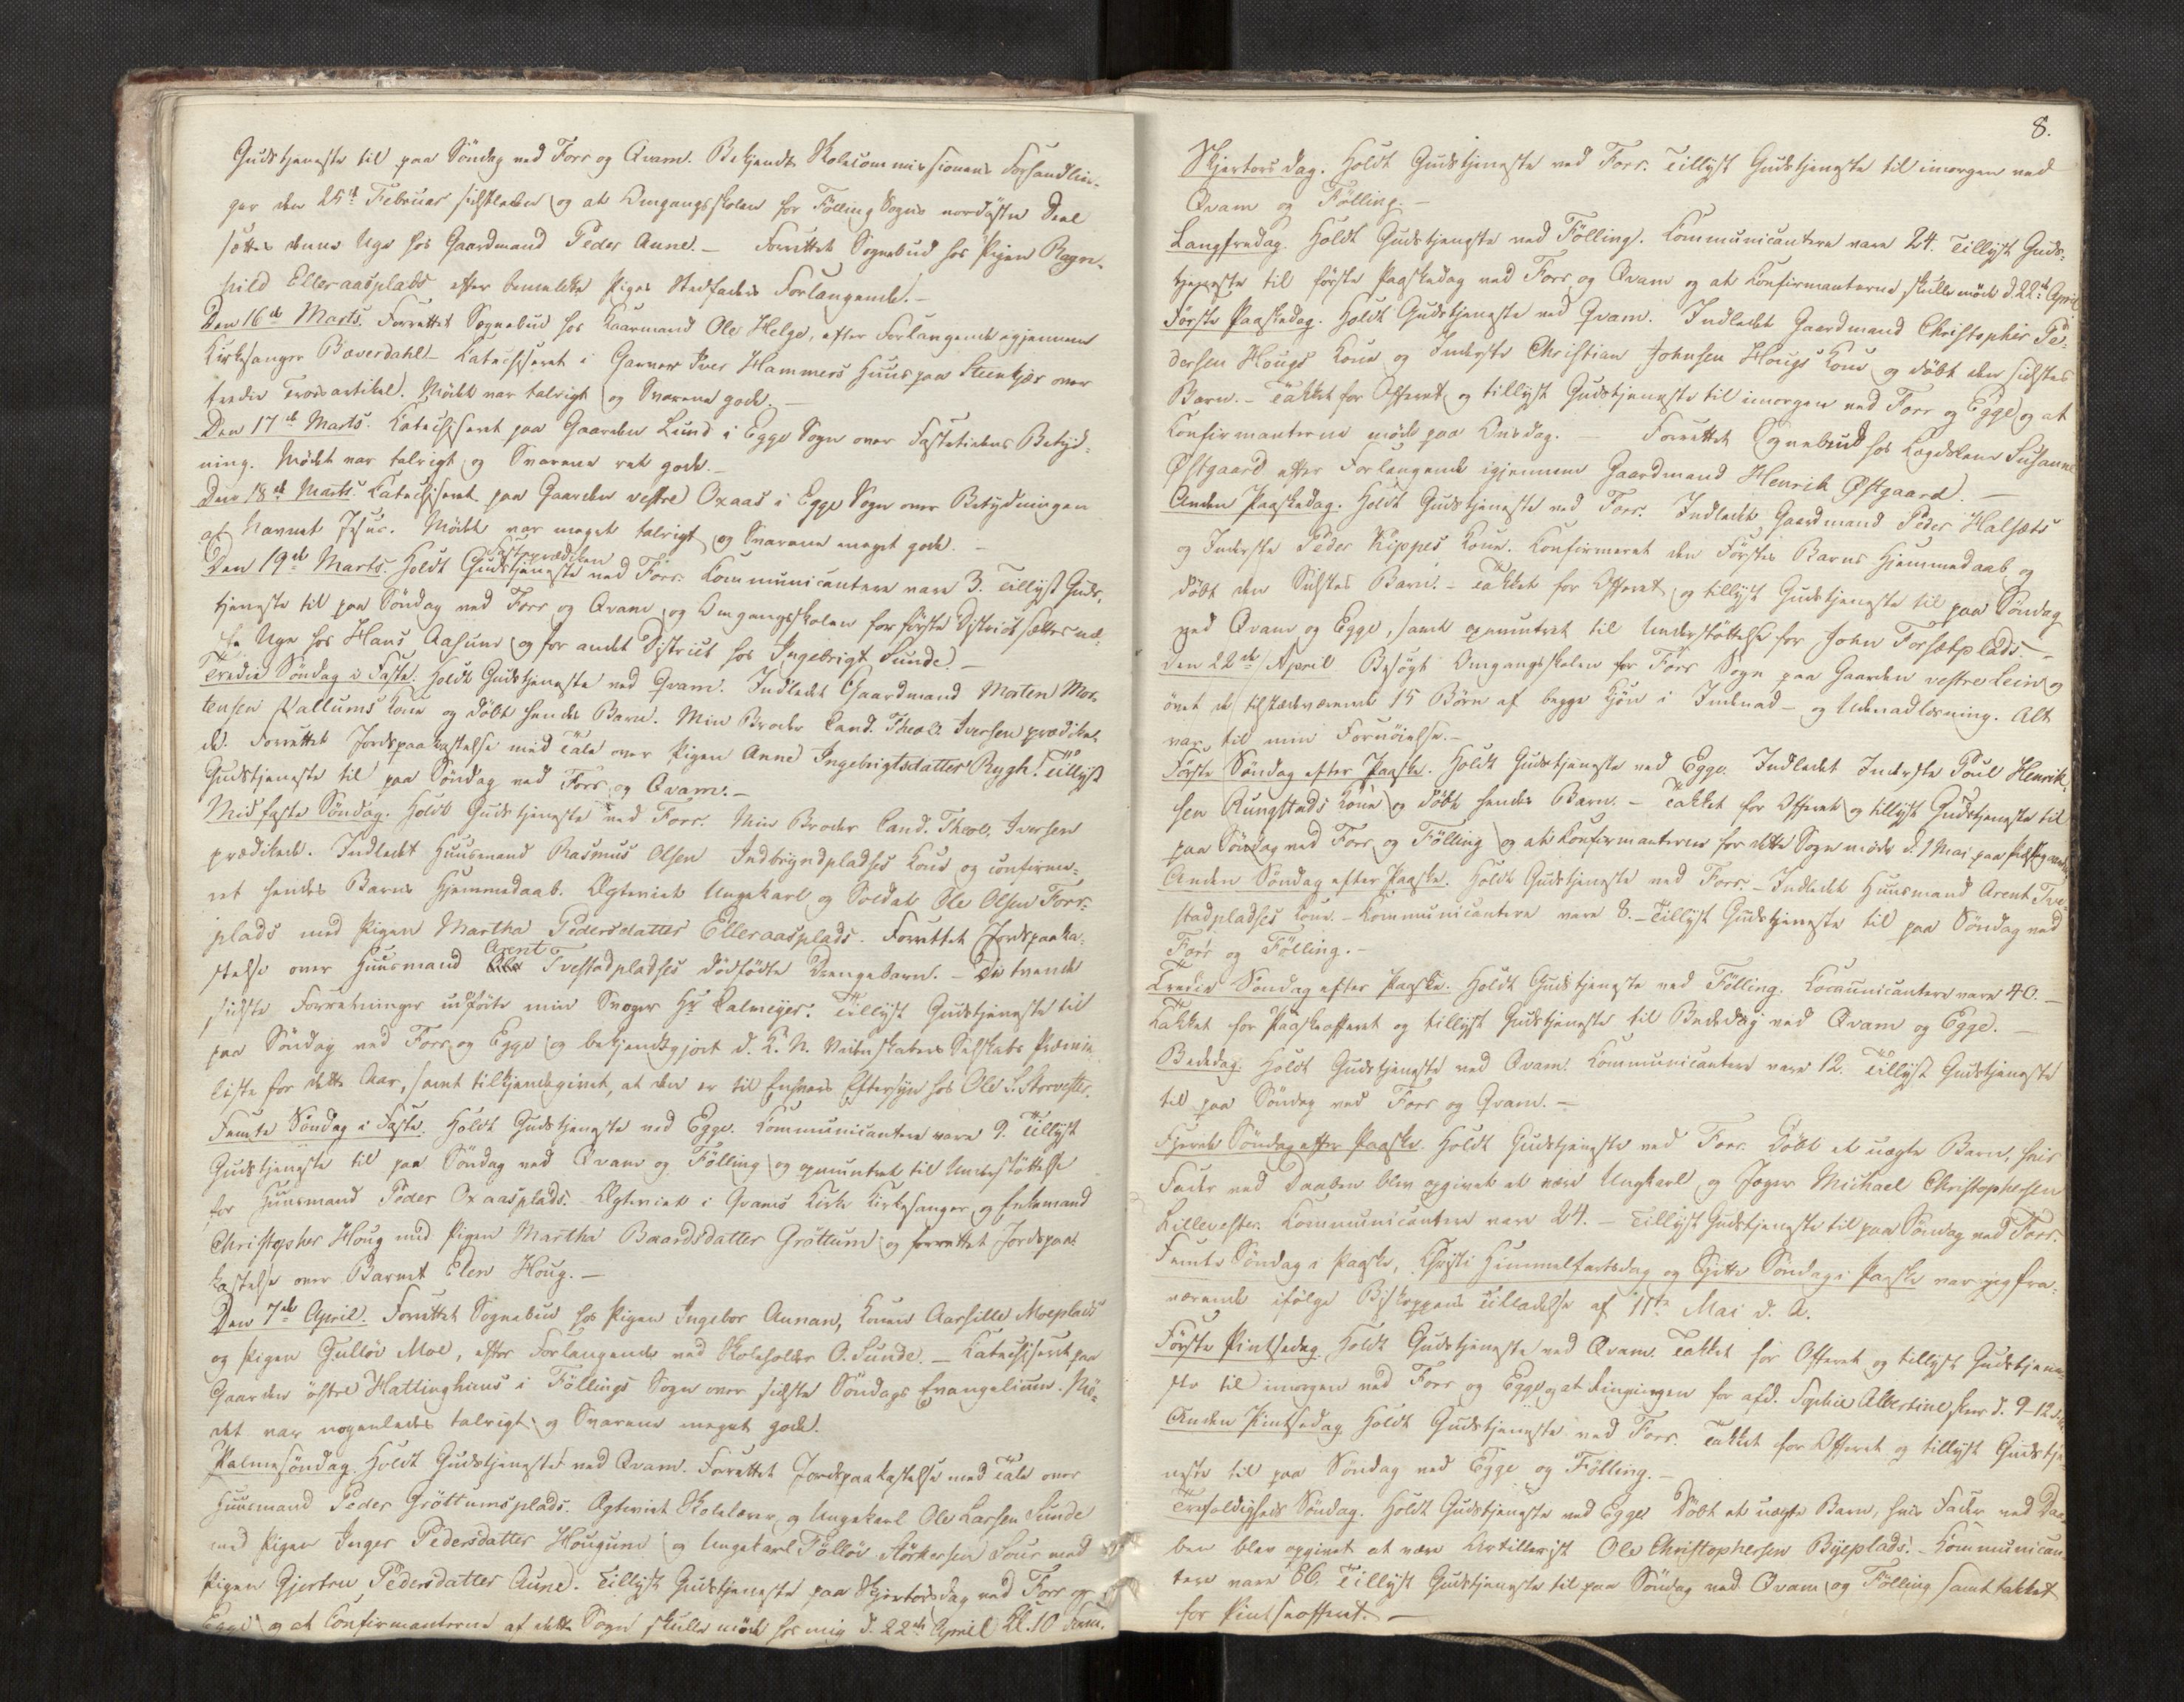 Gudstjeneste til paa Söndag ved Forr og Qvam. Bekjendt Skolecommissionens Forhandlin-
ger den 25de Februar sidstleden og at Omgangsskolen for Fölling Sogns nordöstre Deel
sættes denne Uge hos Gaardmand Peder Aune. – Forrettet Sognebud hos Pigen Ragn-
hild Elleraasplads efter bemeldte Piges Stedfaders Forlangende. –
Den 16de Marts. Forrettet Sognebud hos Kaarmand Ole Helge, efter Forlangende igjennem
Kirkesanger Bæverdahl – Katechiseret i Garver Iver Hammers Huus paa Steenkjær over
tredie Troesartikel. Mödet var talrigt og Svarene gode. –
Den 17de Marts. Katechiseret paa Gaarden Lund i Egge Sogn over Fastetidens Betyd-
ning. Mödet var talrigt og Svarene ret gode. –
Den 18de Marts. Katechiseret paa Gaarden vestre Oxaas i Egge Sogn over Betydningen
af Navnet Jesus. Mödet var meget talrigt og Svarene meget gode. –
Fasteprædiken
Den 19de Marts. Holdt Gudstjeneste ved Forr. Communicantere vare 3. Tillyst Guds-
tjeneste til paa Söndag ved Forr og Qvam og Omgangsskolen for förste District sættes næ-
ste Uge hos Hans Aasum og for andet District hos Ingebrigt Sunde. –
Tredie Söndag i Faste. Holdt Gudstjeneste ved Qvam. Indledet Gaardmand Morten Mor-
tensen Vallums Kone og döbt hendes Barn. Min Broder Cand. Theol. Iversen prædike-
de. Forrettet Jordspaakastelse med Tale over Pigen Anne Ingebrigtsdatter Rygh. Tillyst
Gudstjeneste til paa Söndag ved Forr og Qvam. –
Midfaste Söndag. Holdt Gudstjeneste ved Forr. Min Broder Cand. Theol. Iversen
prædikede. Indledet Huusmand Rasmus Olsen Indbryndpladses Kone og confirme-
ret hendes Barns Hjemmedaab. Ægteviet Ungekarl og Soldat Ole Olsen Forr-
plads med Pigen Martha Pedersdatter Elleraasplads. Forrettet Jordspaaka-
Arent
stelse over Huusmand Tvestadpladses dödfödte Drengebarn. – De tvende
sidste Forretninger udförte min Svoger Hr. Calmeyer. Tillyst Gudstjeneste til
paa Söndag ved Forr og Egge og bekjendtgjort d. K. N. Videnskabers Selskabs Præmie-
liste for dette Aar, samt tilkjendegivet, at den er til Enhvers Eftersyn hos Ole S.
Femte Söndag i Faste. Holdt Gudstjeneste ved Egge. Kommunicantere vare 9. Tillyst
Gudstjeneste til paa Söndag ved Qvam og Fölling og opmuntret til Understöttelse
for Huusmand Peder Oxaasplads. Ægteviet i Qvams Kirke Kirkesanger og Enkemand
Christopher Houg med Pigen Martha Baardsdatter Gröttum og forrettet Jordspaa-
kastelse over Barnet Elen Houg. –
Den 7de April. Forrettet Sognebud hos Pigen Ingebor Aunan, Konen Aarsille Moeplads
og Pigen Gullöv Moe, efter Forlangende ved Skoleholder O. Sunde. – Katechiseret paa
Gaarden östre Hattinghiems i Föllings Sogn over sidste Söndags Evangelium. Mö-
det var nogenledes talrigt og Svarene meget gode.
Palmesöndag. Holdt Gudstjeneste ved Qvam. Forrettet Jordspaakastelse med Tale over
Huusmand Peder Gröttumsplads. Ægteviet Skolelærer og Ungekarl Ole Larsen Sunde
med Pigen Inger Pedersdatter Hougum og Ungekarl Föllöv Störkersen med
Pigen Gjertru Pedersdatter Aune. Tillyst Gudstjeneste paa Skjertorsdag ved Forr og
Egge og at Confirmanterne af dette Sogn skulle möde hos mig d. 22de April Kl. 10 Form.
8.
Skjertorsdag. Holdt Gudstjeneste ved Forr. Tillyst Gudstjeneste til imorgen ved
Qvam og Fölling. –
Langfredag. Holdt Gudstjeneste ved Fölling. Communicantere vare 24. Tillyst Guds-
tjeneste til förste Paaskedag ved Forr og Qvam og at Konfirmanterne skulle möde d. 22de April.
Förste Paaskedag. Holdt Gudstjeneste ved Qvam. Indledet Gaardmand Christopher Pe-
dersen Hougs Kone og Inderste Christian Johnsen Hougs Kone og döbt den sidstes
Barn. – Takket for Offeret og tillyst Gudstjeneste til imorgen ved Forr og Egge og at
Confirmanterne möde paa Onsdag. – Forrettet Sognebud hos Lægdslem Susanne
Østgaard efter Forlangende igjennem Gaardmand Henrik Østgaard. –
Anden Paaskedag. Holdt Gudstjeneste ved Forr. Indledet Gaardmand Peder Halsæts
og Inderste Peder Kippes Kone. Konfirmeret den Förstes Barns Hjemmedaab og
döbt den Sidstes Barn. – Takket for Offeret og tillyst Gudstjeneste til paa Söndag
ved Qvam og Egge, samt opmuntret til Understöttelse for John Forsætplads. –
Den 22de April Besögt Omgangsskolen for Forr Sogn paa Gaarden vestre Lein og
övet de tilstedeværende 15 Börn af begge Kjön i Indenad- og Udenadlæsning. Alt
var til min Fornöielse. –
Förste Söndag efter Paaske. Holdt Gudstjeneste ved Egge. Indledet Inderste Poul Henrik-
sen Rungstads Kone og döbt hendes Barn. – Takket for Offeret og tillyst Gudstjeneste til
paa Söndag ved Forr og Fölling og at Konfirmanterne for dette Sogn möde d. 1 Mai paa
Anden Söndag efter Paaske. Holdt Gudstjeneste ved Forr. – Indledet Huusmand Arent Tve-
stadpladses Kone. – Kommunicantere vare 8. – Tillyst Gudstjeneste til paa Söndag ved
Forr og Fölling. –
Tredie Söndag efter Paaske. Holdt Gudstjeneste ved Fölling. Kommunicantere vare 40. –
Takket for Paaskeofferet og tillyst Gudstjeneste til Bededag ved Qvam og Egge. –
Bededag. Holdt Gudstjeneste ved Qvam. Kommunicantere vare 12. Tillyst Gudstjeneste
til paa Söndag ved Forr og Qvam. –
Fjerde Söndag efter Paaske. Holdt Gudstjeneste ved Forr. Döbt et uægte Barn, hvis
Fader ved Daaben blev opgivet at være Ungkarl og Jæger Michael Christophersen
Lillevester. Kommunicantere vare 24. – Tillyst Gudstjeneste til paa Söndag ved Forr.
Femte Söndag i Paaske, Christi Himmelfartsdag og Sjette Söndag i Paaske var jeg fra-
værende ifölge Biskoppens Tilladelse af 11te Mai d. A.
Förste Pintsedag. Holdt Gudstjeneste ved Qvam. Takket for Offeret og tillyst Gudstjene-
ste til imorgen ved Forr og Egge og at Ringningen for afd. Sophie Albertine skeer d. 9–12
Anden Pintsedag. Holdt Gudstjeneste ved Forr. Takket for Offeret og tillyst Gudstje-
neste til paa Söndag ved Egge og Fölling. –
Trefoldigheds Söndag. Holdt Gudstjeneste ved Egge Döbt et uægte Barn, hvis Fader ved Daa-
ben blev opgivet at være Artillerist Ole Christophersen Byeplads. – Kommunican-
tere vare 86. Tillyst Gudstjeneste til paa Söndag ved Qvam og Fölling samt takket
for Pintseofferet. –